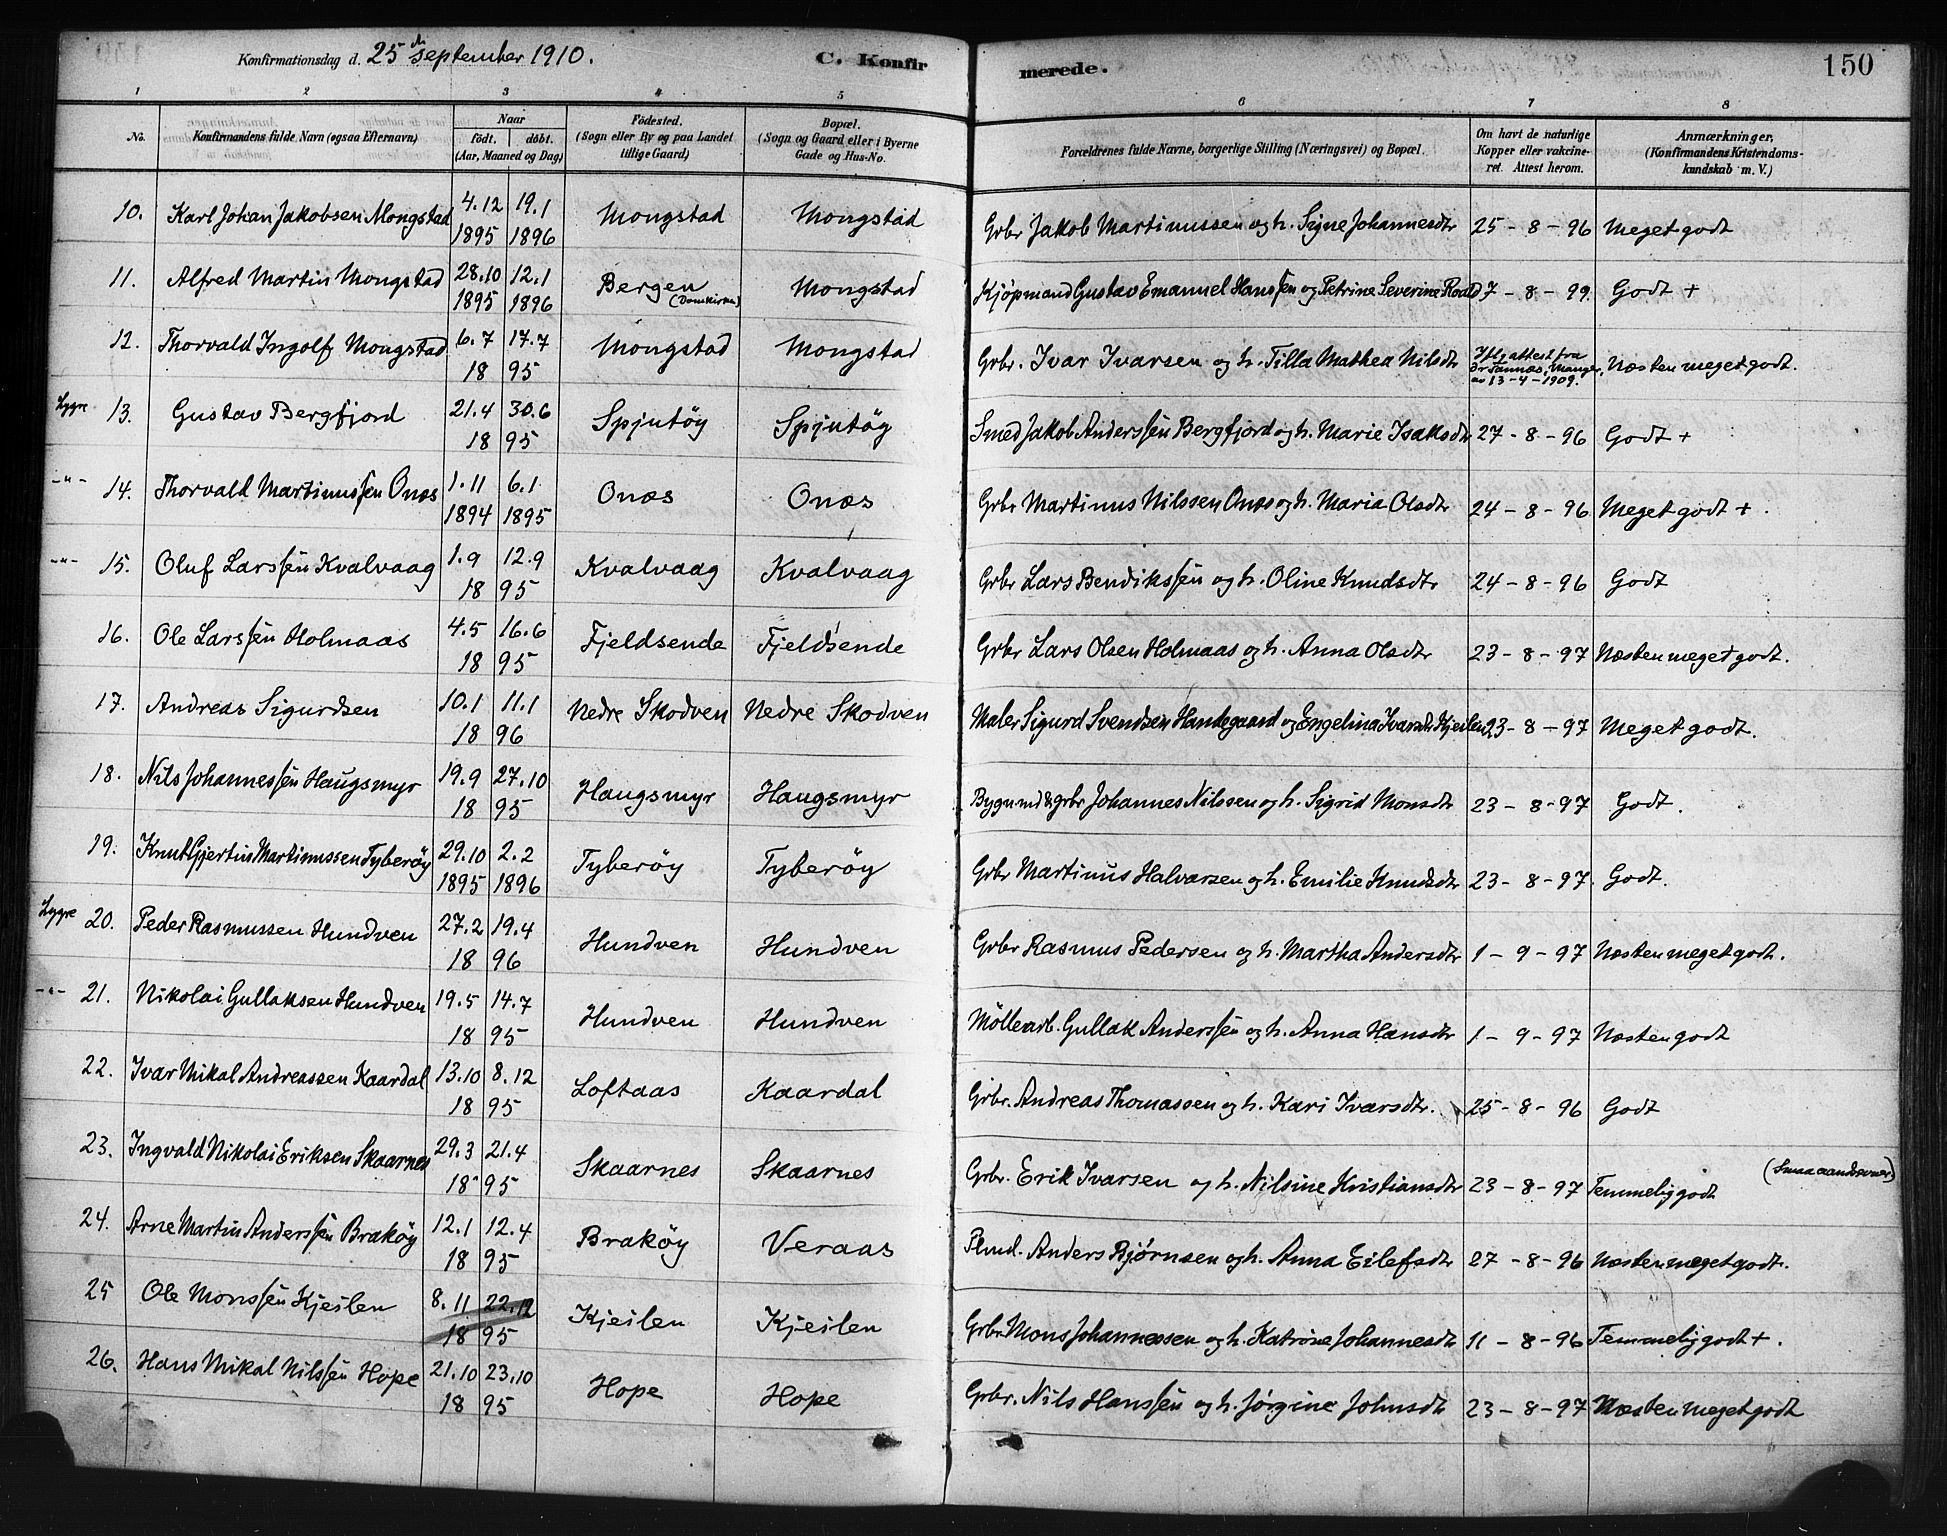 Konfirmationsdag d. 25de september 1910.
C. Konfirmerede.
150
1 2 3 4 5 6 7 8
No.
Konfirmandens fulde Navn (ogsaa Efternavn)
Naar
født. døbt.
(Aar, Maaned og Dag)
Fødested.
(Sogn eller By og paa Landet
tillige Gaard)
Bopæl.
(Sogn og Gaard eller i Byerne
Gade og Hus-No.
Forældrenes fulde Navne, borgerlige Stilling (Næringsvei) og Bopæl.
Om havt de naturlige
Kopper eller vakcine-
ret. Attest herom.
Anmærkninger,
(Konfirmandens Kristendoms-
kundskab m. V.)
10. Karl Johan Jakobsen Mongstad 4.12 1895 19.1 1896 Mongstad Mongstad Grbr Jakob Martinussen og h. Signe Johannesdtr 25-8-96 Meget godt
11. Alfred Martin Mongstad 28.10 1895 12.1 1896 Bergen (Domkirken) Mongstad Kjøpmand Gustav Emanuel Hanssen og Petrine Severine Roald 7-8-99. Godt +
12. Thorvald Ingolf Mongstad 6.7 17.7 1895 Mongstad Mongstad Grbr. Ivar Ivarsen og h. Tilla Mathea Nilsdtr Iflg attest fra Dr Sannæs, Manger, av 13-4-1909. Næsten meget godt.
Lygre 13. Gustav Bergfjord 21.4 30.6 1895 Spjutøy Spjutøy Smed Jakob Anderssen Bergfjord og h. Marie Isaksdtr 27-8-96 Godt +
-"- 14. Thorvald Martinussen Onæs 1.11 1894 6.1 1895 Onæs Onæs Grbr Martinus Nilssen Onæs og h. Maria Olsdtr 24-8-96 Meget godt +.
-"- 15. Oluf Larssen Kvalvaag 1.9 12.9 1895 Kvalvaag Kvalvaag Grbr Lars Bendikssen og h. Oline Knudsdtr 24-8-96 Godt
16. Ole Larssen Holmaas 4.5 16.6 1895 Fjeldsende Fjeldsende Grbr Lars Olsen Holmaas og h. Anna Olsdtr 23-8-97 Næsten meget godt.
17. Andreas Sigurdsen 10.1 11.1 1896 Nedre Skodven Nedre Skodven Maler Sigurd Svendsen Handegaard og Engelina Ivarsdtr Kjeilen 23-8-97 Meget godt.
18. Nils Johannessen Haugsmyr 19.9 27.10 1895 Haugsmyr Haugsmyr Bygnmd & grbr Johannes Nilssen og h. Sigrid Monsdtr 23-8-97 Godt.
19. Knut Gjertius Martinussen Tyberøy 29.10 1895 2.2 1896 Tyberøy Tyberøy Grbr Martinus Halvarsen og h. Emilie Knudsdtr 23-8-97 Godt.
Lygre 20. Peder Rasmussen Hundven 27.2 19.4 1896 Hundven Hundven Grbr Rasmus Pedersen og h. Martha Andersdtr 1-9-97 Næsten meget godt.
-"- 21. Nikolai Gullaksen Hundven 19.5 14.7 1895 Hundven Hundven Møllearb. Gullak Anderssen og h. Anna Hansdtr 1-9-97 Næsten godt
22. Ivar Mikal Andreassen Kaardal 13.10 8.12 1895 Loftaas Kaardal Grbr. Andreas Thomassen og h. Kari Ivarsdtr. 25-8-96 Godt
23. Ingvald Nikolai Eriksen Skaarnes 29.3 21.4 1895 Skaarnes Skaarnes Grbr. Erik Ivarsen og h. Nilsine Kristiansdtr 23-8-97 Temmelig godt (Smaa aandsevner)
24. Arne Martin Anderssen Brakøy 12.1 12.4 1895 Brakøy Veraas Anders Bjørnsen og h. Anna Eilefsdtr 27-8-96 Næsten meget godt.
25 Ole Monssen Kjeilen 8.11 22.12 1895 Kjeilen Kjeilen Grbr. Mons Johannessen og h. Katrine Johannesdtr 11-8-96 Temmelig godt +.
26. Hans Mikal Nilssen Hope 21.10 23.10 1895 Hope Hope Grbr. Nils Hanssen og h. Jørgine Johnsdtr 23-8-97 Næsten meget godt